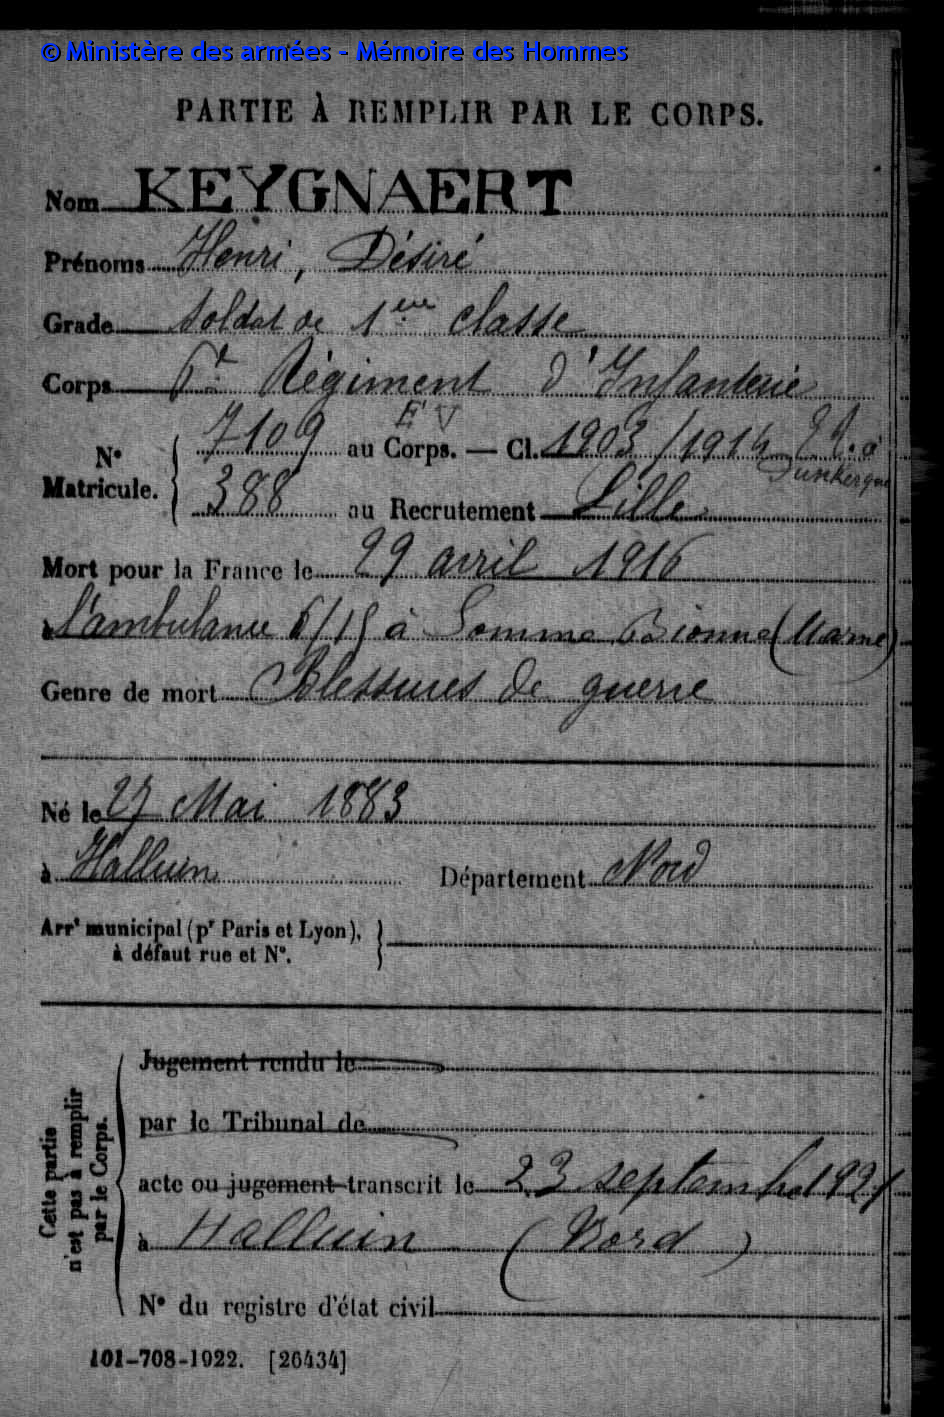 © Ministère des armées - Mémoire des Hommes
PARTIE À REMPLIR PAR LE CORPS.
Nom KEYGNAERT
Prénoms Henri, Désiré
Grade Soldat de 1ère classe
Corps 6e Régiment d'Infanterie
N° Matricule. 7109 au Corps. — Cl. 1903/1914 à Dunkerque
388 au Recrutement Lille
Mort pour la France le 29 avril 1916
à l'ambulance 6/15 à Somme Bionne (Marne)
Genre de mort Blessures de guerre
Né le 27 Mai 1883
à Halluin Département Nord
Arrt municipal (pr Paris et Lyon),
à défaut rue et N°.
Cette partie
n'est pas à remplir
par le Corps.
Jugement rendu le
par le Tribunal de
acte ou jugement transcrit le 23 septembre 1921
à Halluin (Nord)
N° du registre d'état civil
101-708-1922. [26434]